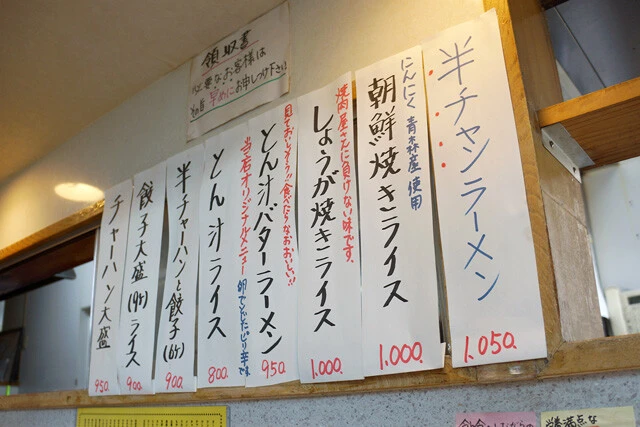 領収書
必要なお客様は
早めにお申しつけ下さい
半チャンラーメン
1.050.
にんにく青森産使用
朝鮮焼きライス
1.000.
焼肉屋さんに負けない味です。
しょうが焼きライス
1.000.
見ておいしソ〜!!食べたらなおおいしい!!
とん汁バターラーメン
950
当店オリジナルメニュー
卵でとじたピリ辛です
とん汁ライス
800.
半チャーハンと餃子(6ケ)
900.
餃子大盛(9ケ)ライス
900
チャーハン大盛
950.